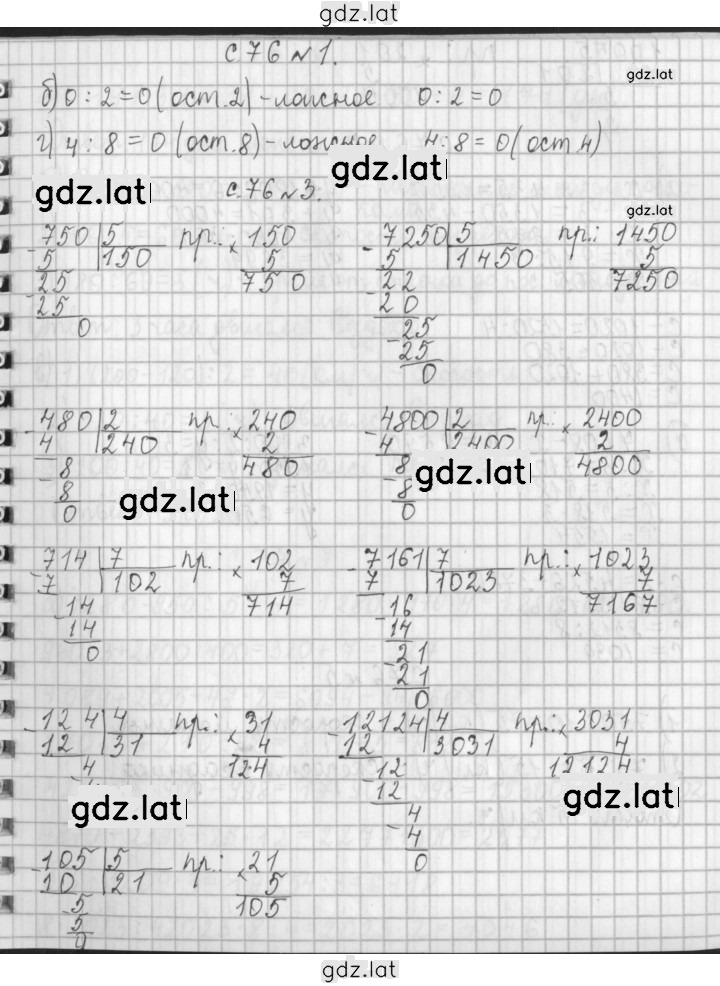 gdz.lat
с 76 №1.
gdz.lat
б) 0 : 2 = 0 (ост. 2) - ложное 0 : 2 = 0
г) 4 : 8 = 0 (ост. 8) - ложное 4 : 8 = 0 (ост 4)
gdz.lat
gdz.lat
с. 76 №3.
gdz.lat
- 750 | 5 пр.: × 150 - 7250 | 5 пр.: 1450
5 | 150 5 5 | 1450 5
25 750 22 7250
- 25 - 20
0 - 25
25
0
- 480 | 2 пр.: × 240 - 4800 | 2 пр.: × 2400
4 | 240 2 4 | 2400 2
8 480 8 4800
gdz.lat
- 8 - 8
gdz.lat
0 0
- 714 | 7 пр.: × 102 - 7161 | 7 пр.: × 1023
7 | 102 7 7 | 1023 7
- 14 714 - 16 7167
14 14
0 - 21
21
0
- 124 | 4 пр.: × 31 - 12124 | 4 пр.: × 3031
12 | 31 4 12 | 3031 4
4 124 - 12 12124
12
gdz.lat
4
gdz.lat
- 4
0
- 105 | 5 пр.: × 21
10 | 21 5
- 5 105
5
0
gdz.lat